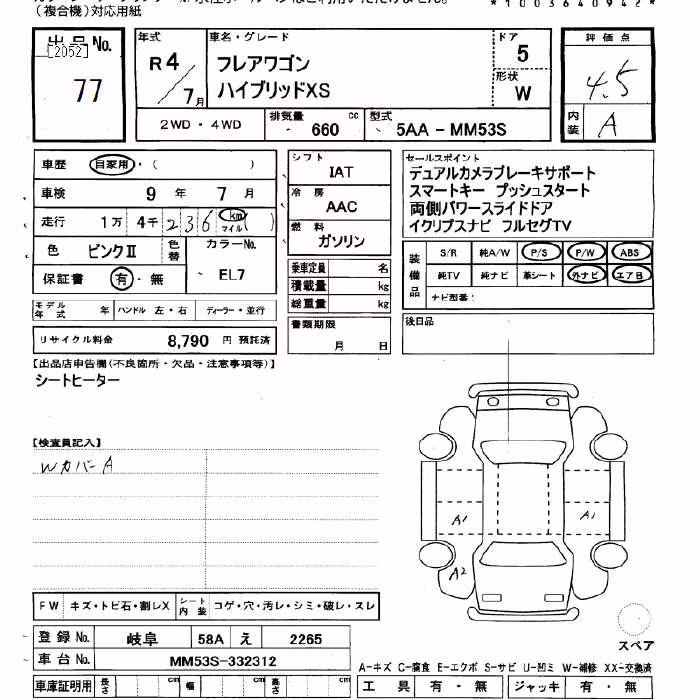 (複合機)対応用紙
*1003640942*
出品No.
[2052]
77
年式
R4
7月
車名・グレード
フレアワゴン
ハイブリッドXS
ドア
5
形状
W
評価点
4.5
内装
A
2WD・4WD
排気量
660
cc
型式
5AA-MM53S
車歴
自家用・( )
車検
9年7月
走行
1万4千236km
マイル( )
色
ピンクⅡ
色替
カラーNo.
EL7
保証書
有・無
シフト
IAT
冷房
AAC
燃料
ガソリン
乗車定員
名
積載量
kg
総重量
kg
セールスポイント
デュアルカメラブレーキサポート
スマートキー プッシュスタート
両側パワースライドドア
イクリプスナビ フルセグTV
装備品
S/R
純A/W
P/S
P/W
ABS
純TV
純ナビ
革シート
外ナビ
エアB
ナビ型番:
モデル年式
年
ハンドル 左・右
ディーラー・並行
リサイクル料金
8,790円 預託済
書類期限
月 日
後日品
【出品店申告欄(不良箇所・欠品・注意事項等)】
シートヒーター
【検査員記入】
WカバーA
A1
A1
A2
FW
キズ・トビ石・割レX
シート内装
コゲ・穴・汚レ・シミ・破レ・スレ
スペア
登録No.
岐阜
58A
え
2265
車台No.
MM53S-332312
車庫証明用
長さ
cm
幅
cm
高さ
cm
A-キズ C-腐食 E-エクボ S-サビ U-凹ミ W-補修 XX-交換済
工具
有・無
ジャッキ
有・無